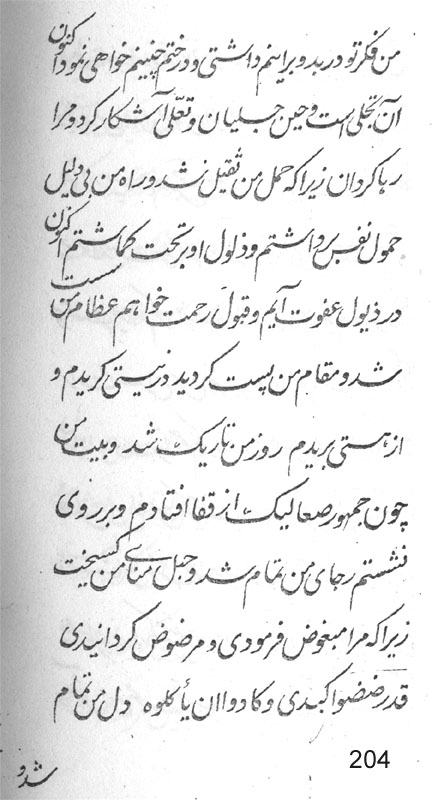 من فکر تو در بدو برایم داشتی و در ختم چنینم خواهی نمود اکنون
آن تجلی است و حین جلیان و تعلی آشکار کرد و مرا
رها کردان زیرا که حمل من ثقیل شد و راه من بی دلیل
حمول نفس برداشتم و ذلول او بر تحت گماشتم اکنون
در ذیول عفوت آیم و قبول رحمت خواهم عظام من سست
شد و مقام من پست کردید در نیستی کریدم و
از هستی بریدم روز من تاریک شد و بیت من
چون جمهور صعالیک از قفا افتادم و بر روی
نشستم رجای من تمام شد و حبل منای من کسیخت
زیرا که مرا مبغوض فرمودی و مرضوض کردانیدی
قدر ضضوا کبدی و کادوا ان یأکلوه دل من تمام
شد و
204